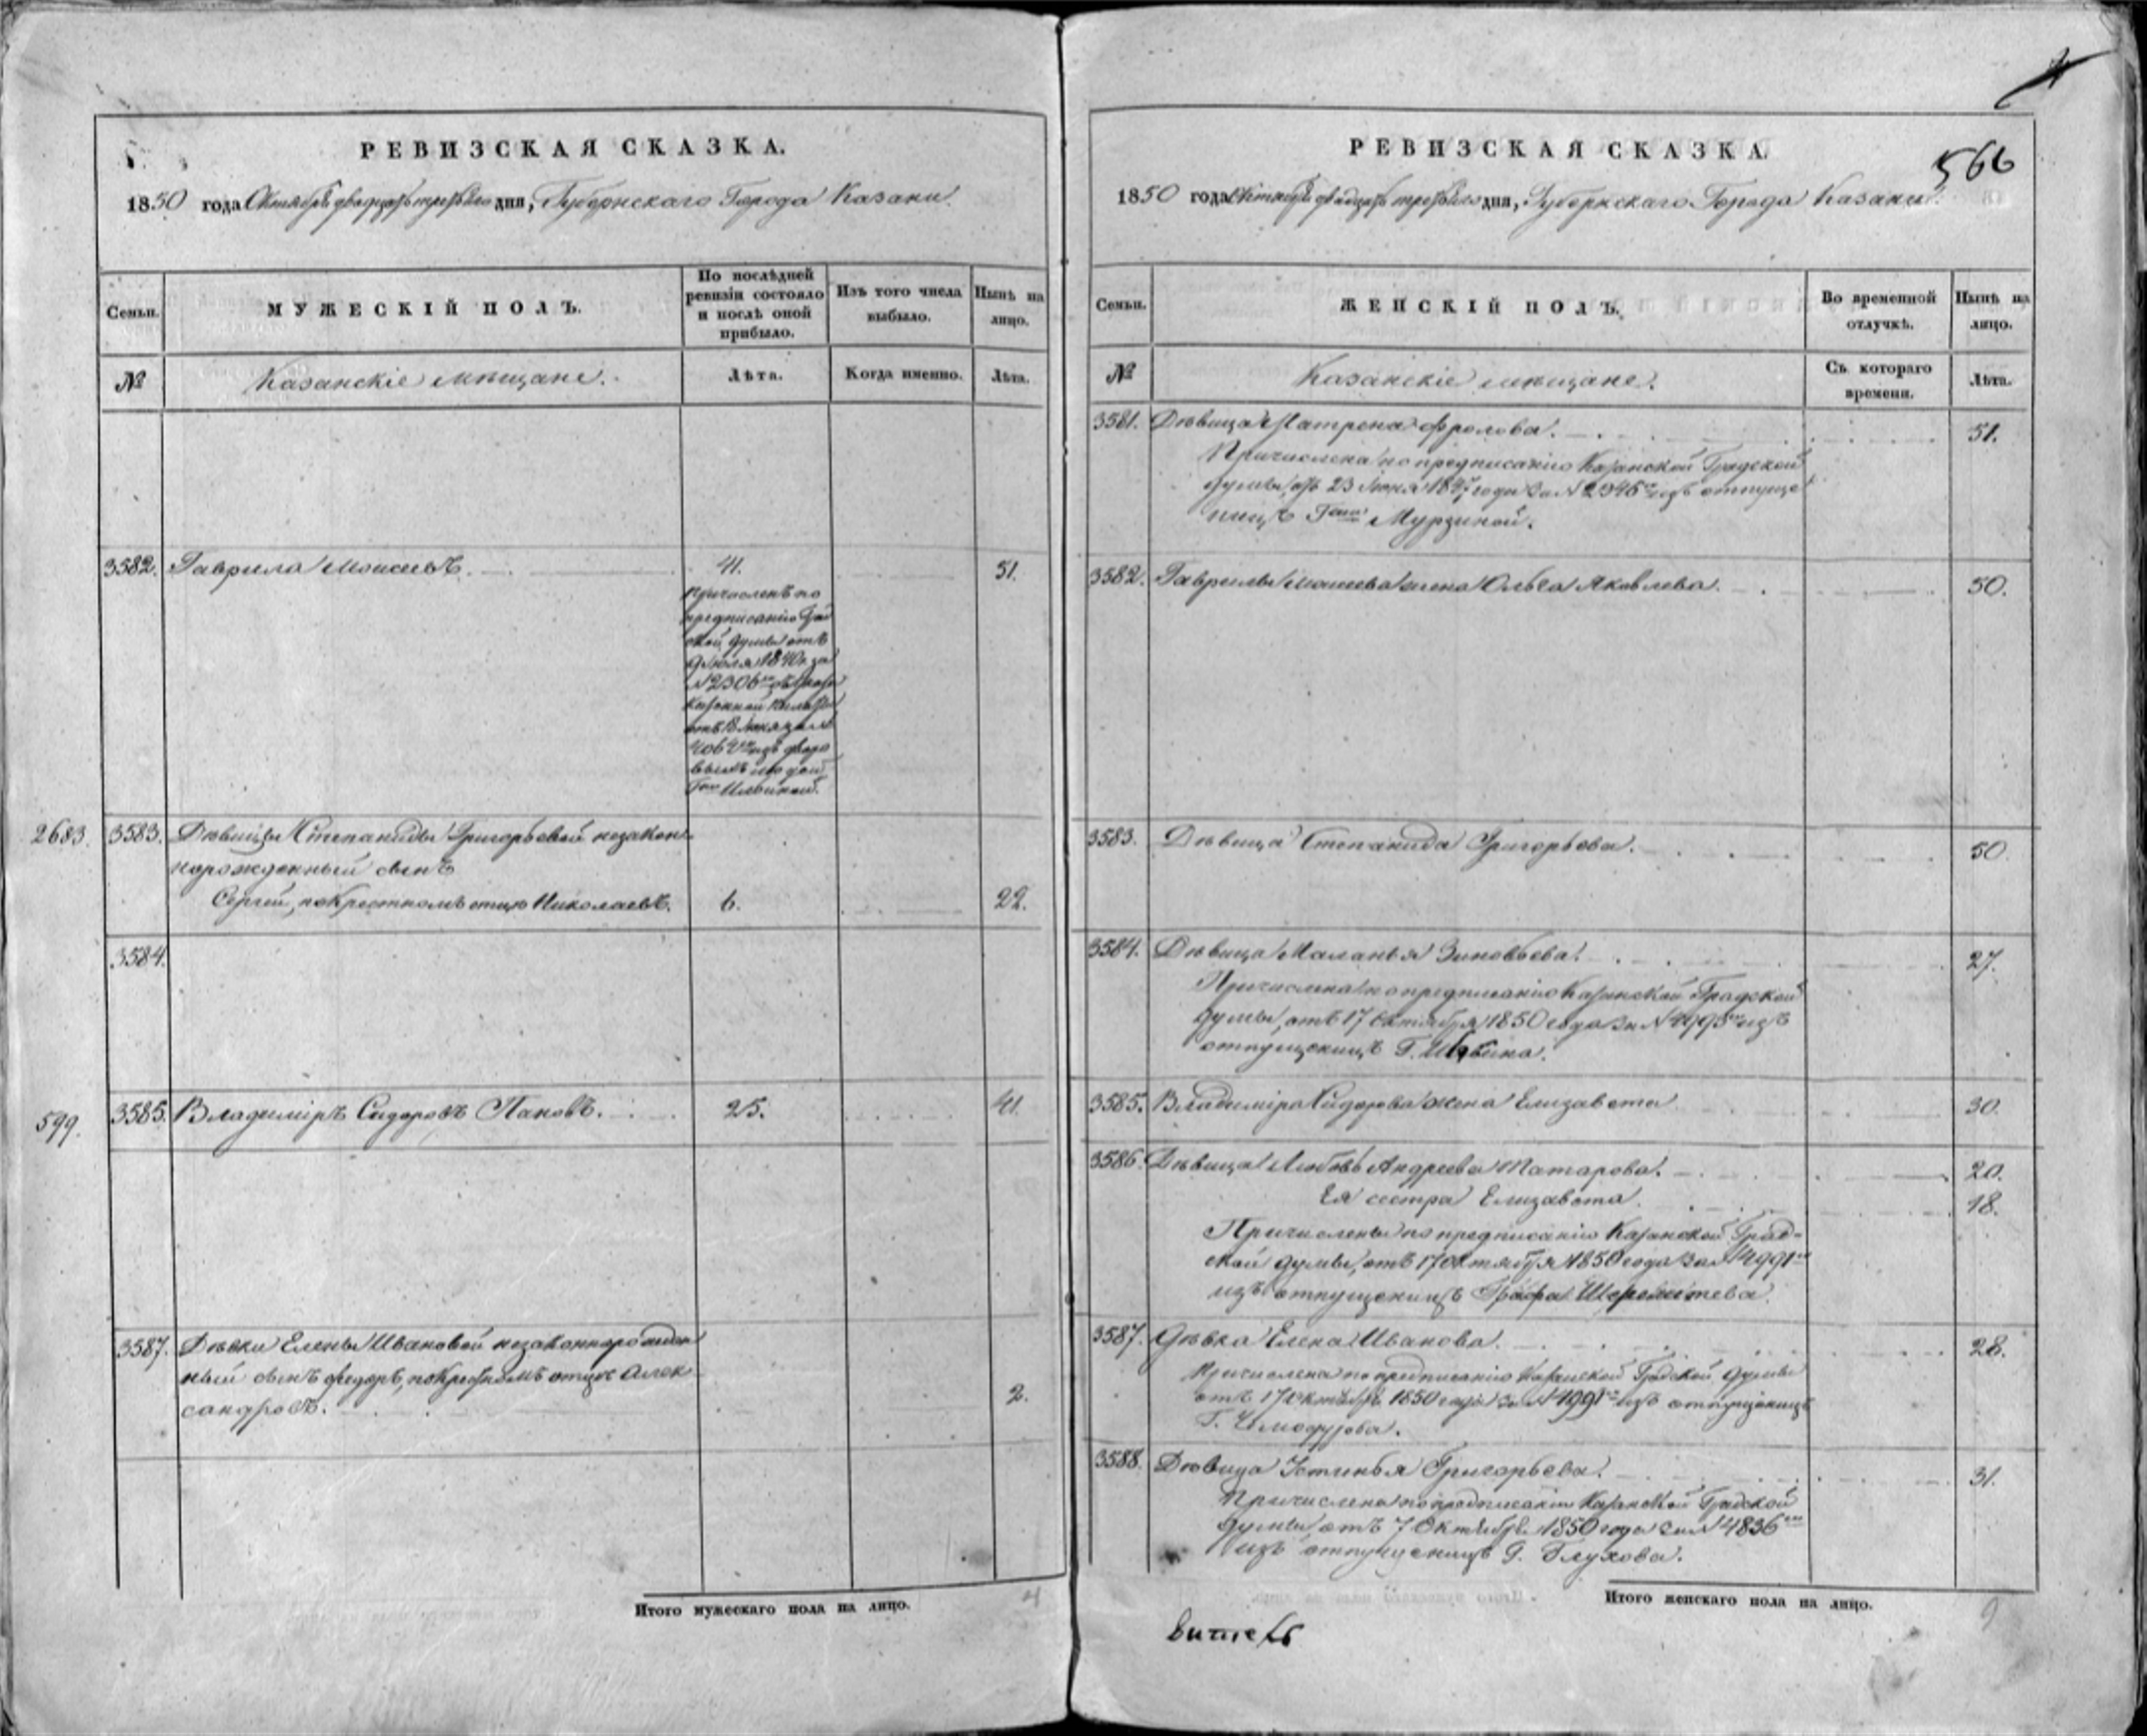 РЕВИЗСКАЯ СКАЗКА.
1850 года Октября двадцать третьяго дня, Губернскаго Города Казани.
Семьи.
МУЖЕСКІЙ ПОЛЪ.
По послѣдней ревизіи состояло и послѣ оной прибыло.
Изъ того числа выбыло.
Нынѣ на лицо.
№
Казанскіе мѣщане.
Лѣта.
Когда именно.
Лѣта.
3582. Гаврила Моисеевъ. 41. 51.
Причисленъ по
предписанію Град
ской Думы отъ
9 Іюля 1840 г. за
№ 2306
Казенной Палаты
изъ дворо
выхъ людей
2683. 3583. Дѣвицы Степаниды Григорьевой незакон-
норожденный сынъ
Сергей, по крестномъ отцѣ Николаевъ. 6. 22.
3584.
599. 3585. Владиміръ Сидоровъ Пановъ. 25. 41.
3587. Дѣвки Елены Ивановой незаконнорожден
ный сынъ Федоръ, по крестномъ отцѣ Алек
сандровъ. 2.
Итого мужескаго пола на лицо. 4
566
РЕВИЗСКАЯ СКАЗКА.
1850 года Октября двадцать третьяго дня, Губернскаго Города Казани.
Семьи.
ЖЕНСКІЙ ПОЛЪ.
Во временной отлучкѣ.
Нынѣ на лицо.
№
Казанскіе мѣщане.
Съ котораго времени.
Лѣта.
3581. Дѣвица Матрена Фролова. 51.
Причислена по предписанію Казанской Градской
Думы, отъ 23 Іюня 1847 года за № 2346 изъ отпуще
ницъ Гжи Мурзиной.
3582. Гаврилы Моисеева жена Ольга Яковлева. 50.
3583. Дѣвица Степанида Григорьева. 50.
3584. Дѣвица Маланья Зиновьева. 27.
Причислена по предписанію Казанской Градской
Думы, отъ 17 Октября 1850 года за № 4995 изъ
отпущеницъ Г.
3585. Владиміра Сидорова жена Елизавета 30.
3586. Дѣвица Любовь Андреева Татарова. 20.
Ея сестра Елизавета. 18.
Причислены по предписанію Казанской Град-
ской Думы, отъ 17 Октября 1850 года за № 4991
изъ отпущеницъ Графа Шереметева.
3587. Дѣвка Елена Иванова. 28.
Причислена по предписанію Казанской Градской Думы
отъ 17 Октября 1850 года за № 4991 изъ отпущеницъ
Г. Чемодурова.
3588. Дѣвица Устинья Григорьева. 31.
Причислена по предписанію Казанской Градской
Думы, отъ 7 Октября 1850 года за № 4836
изъ отпущеницъ Г. Глухова.
Итого женскаго пола на лицо. 9